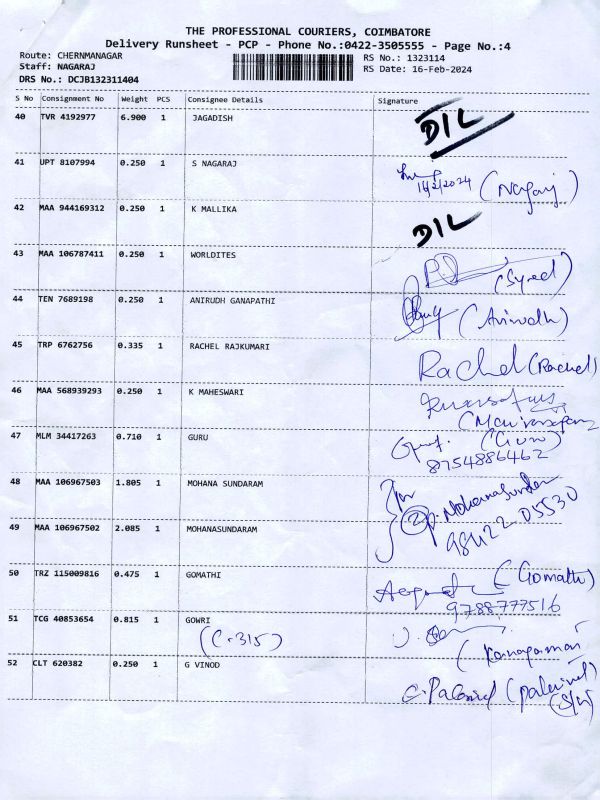 THE PROFESSIONAL COURIERS, COIMBATORE
Delivery Runsheet - PCP - Phone No.:0422-3505555 - Page No.:4
Route: CHERNMANAGAR RS No.: 1323114
Staff: NAGARAJ RS Date: 16-Feb-2024
DRS No.: DCJB132311404
S No Consignment No Weight PCS Consignee Details Signature
40 TVR 4192977 6.900 1 JAGADISH D/L
41 UPT 8107994 0.250 1 S NAGARAJ (Nagaraj)
16/2/2024
42 MAA 944169312 0.250 1 K MALLIKA D/L
43 MAA 106787411 0.250 1 WORLDITES (Syed)
44 TEN 7689198 0.250 1 ANIRUDH GANAPATHI (Anirudh)
45 TRP 6762756 0.335 1 RACHEL RAJKUMARI Rachel (Rachel)
46 MAA 568939293 0.250 1 K MAHESWARI
47 MLM 34417263 0.710 1 GURU (Guru)
8754886462
48 MAA 106967503 1.805 1 MOHANA SUNDARAM
2 p. Mohanasundaram
98422 05530
49 MAA 106967502 2.085 1 MOHANASUNDARAM
50 TRZ 115009816 0.475 1 GOMATHI (Gomathi)
9788777516
51 TCG 40853654 0.815 1 GOWRI
(C-315)
52 CLT 620382 0.250 1 G VINOD